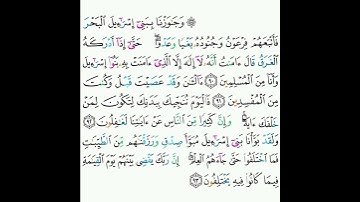 ۞ وَجَٰوَزۡنَا بِبَنِيٓ إِسۡرَٰٓءِيلَ ٱلۡبَحۡرَ
فَأَتۡبَعَهُمۡ فِرۡعَوۡنُ وَجُنُودُهُۥ بَغۡيٗا وَعَدۡوًاۖ حَتَّىٰٓ إِذَآ أَدۡرَكَهُ
ٱلۡغَرَقُ قَالَ ءَامَنتُ أَنَّهُۥ لَآ إِلَٰهَ إِلَّا ٱلَّذِيٓ ءَامَنَتۡ بِهِۦ بَنُوٓاْ إِسۡرَٰٓءِيلَ
وَأَنَا۠ مِنَ ٱلۡمُسۡلِمِينَ ٩٠ ءَآلۡـَٰٔنَ وَقَدۡ عَصَيۡتَ قَبۡلُ وَكُنتَ
مِنَ ٱلۡمُفۡسِدِينَ ٩١ فَٱلۡيَوۡمَ نُنَجِّيكَ بِبَدَنِكَ لِتَكُونَ لِمَنۡ
خَلۡفَكَ ءَايَةٗۚ وَإِنَّ كَثِيرٗا مِّنَ ٱلنَّاسِ عَنۡ ءَايَٰتِنَا لَغَٰفِلُونَ ٩٢
وَلَقَدۡ بَوَّأۡنَا بَنِيٓ إِسۡرَٰٓءِيلَ مُبَوَّأَ صِدۡقٖ وَرَزَقۡنَٰهُم مِّنَ ٱلطَّيِّبَٰتِ
فَمَا ٱخۡتَلَفُواْ حَتَّىٰ جَآءَهُمُ ٱلۡعِلۡمُۚ إِنَّ رَبَّكَ يَقۡضِي بَيۡنَهُمۡ يَوۡمَ ٱلۡقِيَٰمَةِ
فِيمَا كَانُواْ فِيهِ يَخۡتَلِفُونَ ٩٣